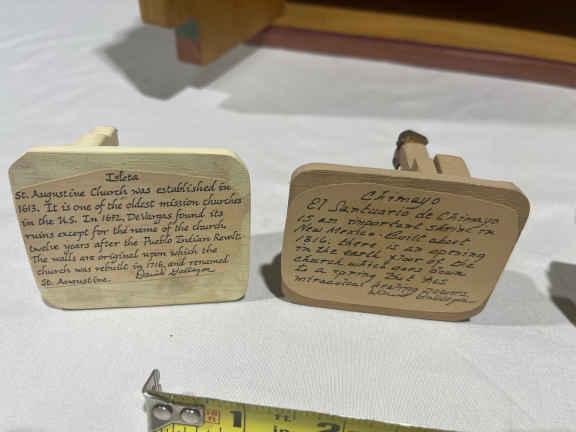 Isleta
St. Augustine Church was established in
1613. It is one of the oldest mission churches
in the U.S. In 1692, DeVargas found its
ruins except for the name of the church,
twelve years after the Pueblo Indian Revolt.
The walls are original upon which the
church was rebuilt in 1716, and renamed
St. Augustine. David Gallegos
Chimayo
El Santuario de Chimayo
is an important shrine in
New Mexico. Built about
1816. there is an opening
in the earth floor of the
church which goes down
to a spring. It has
miraculous healing powers
David Gallegos
1 2
in